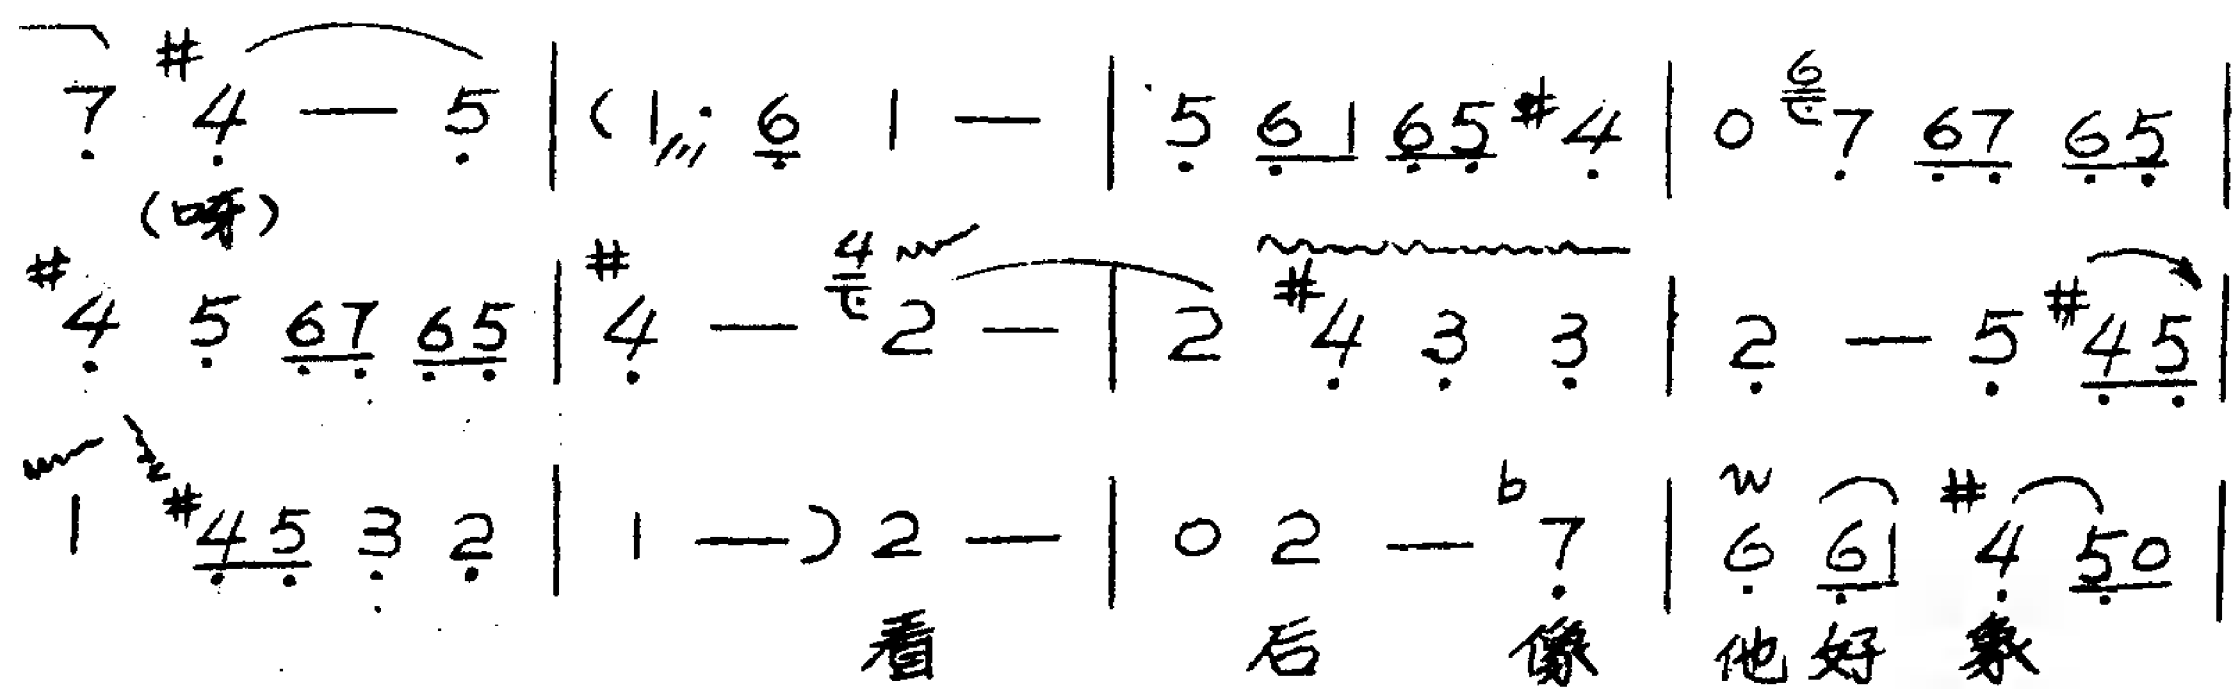 7 #4 — 5 | ( 1 · 6 1 — | 5 61 65 #4 | 0 6 7 67 65 |
(呀)
#4 5 67 65 | #4 — 4 2 — | 2 #4 3 3 | 2 — 5 #45 |
1 #45 3 2 | 1 — ) 2 — | 0 2 — b7 | 6 61 #4 50 |
看 后 像 他 好 象